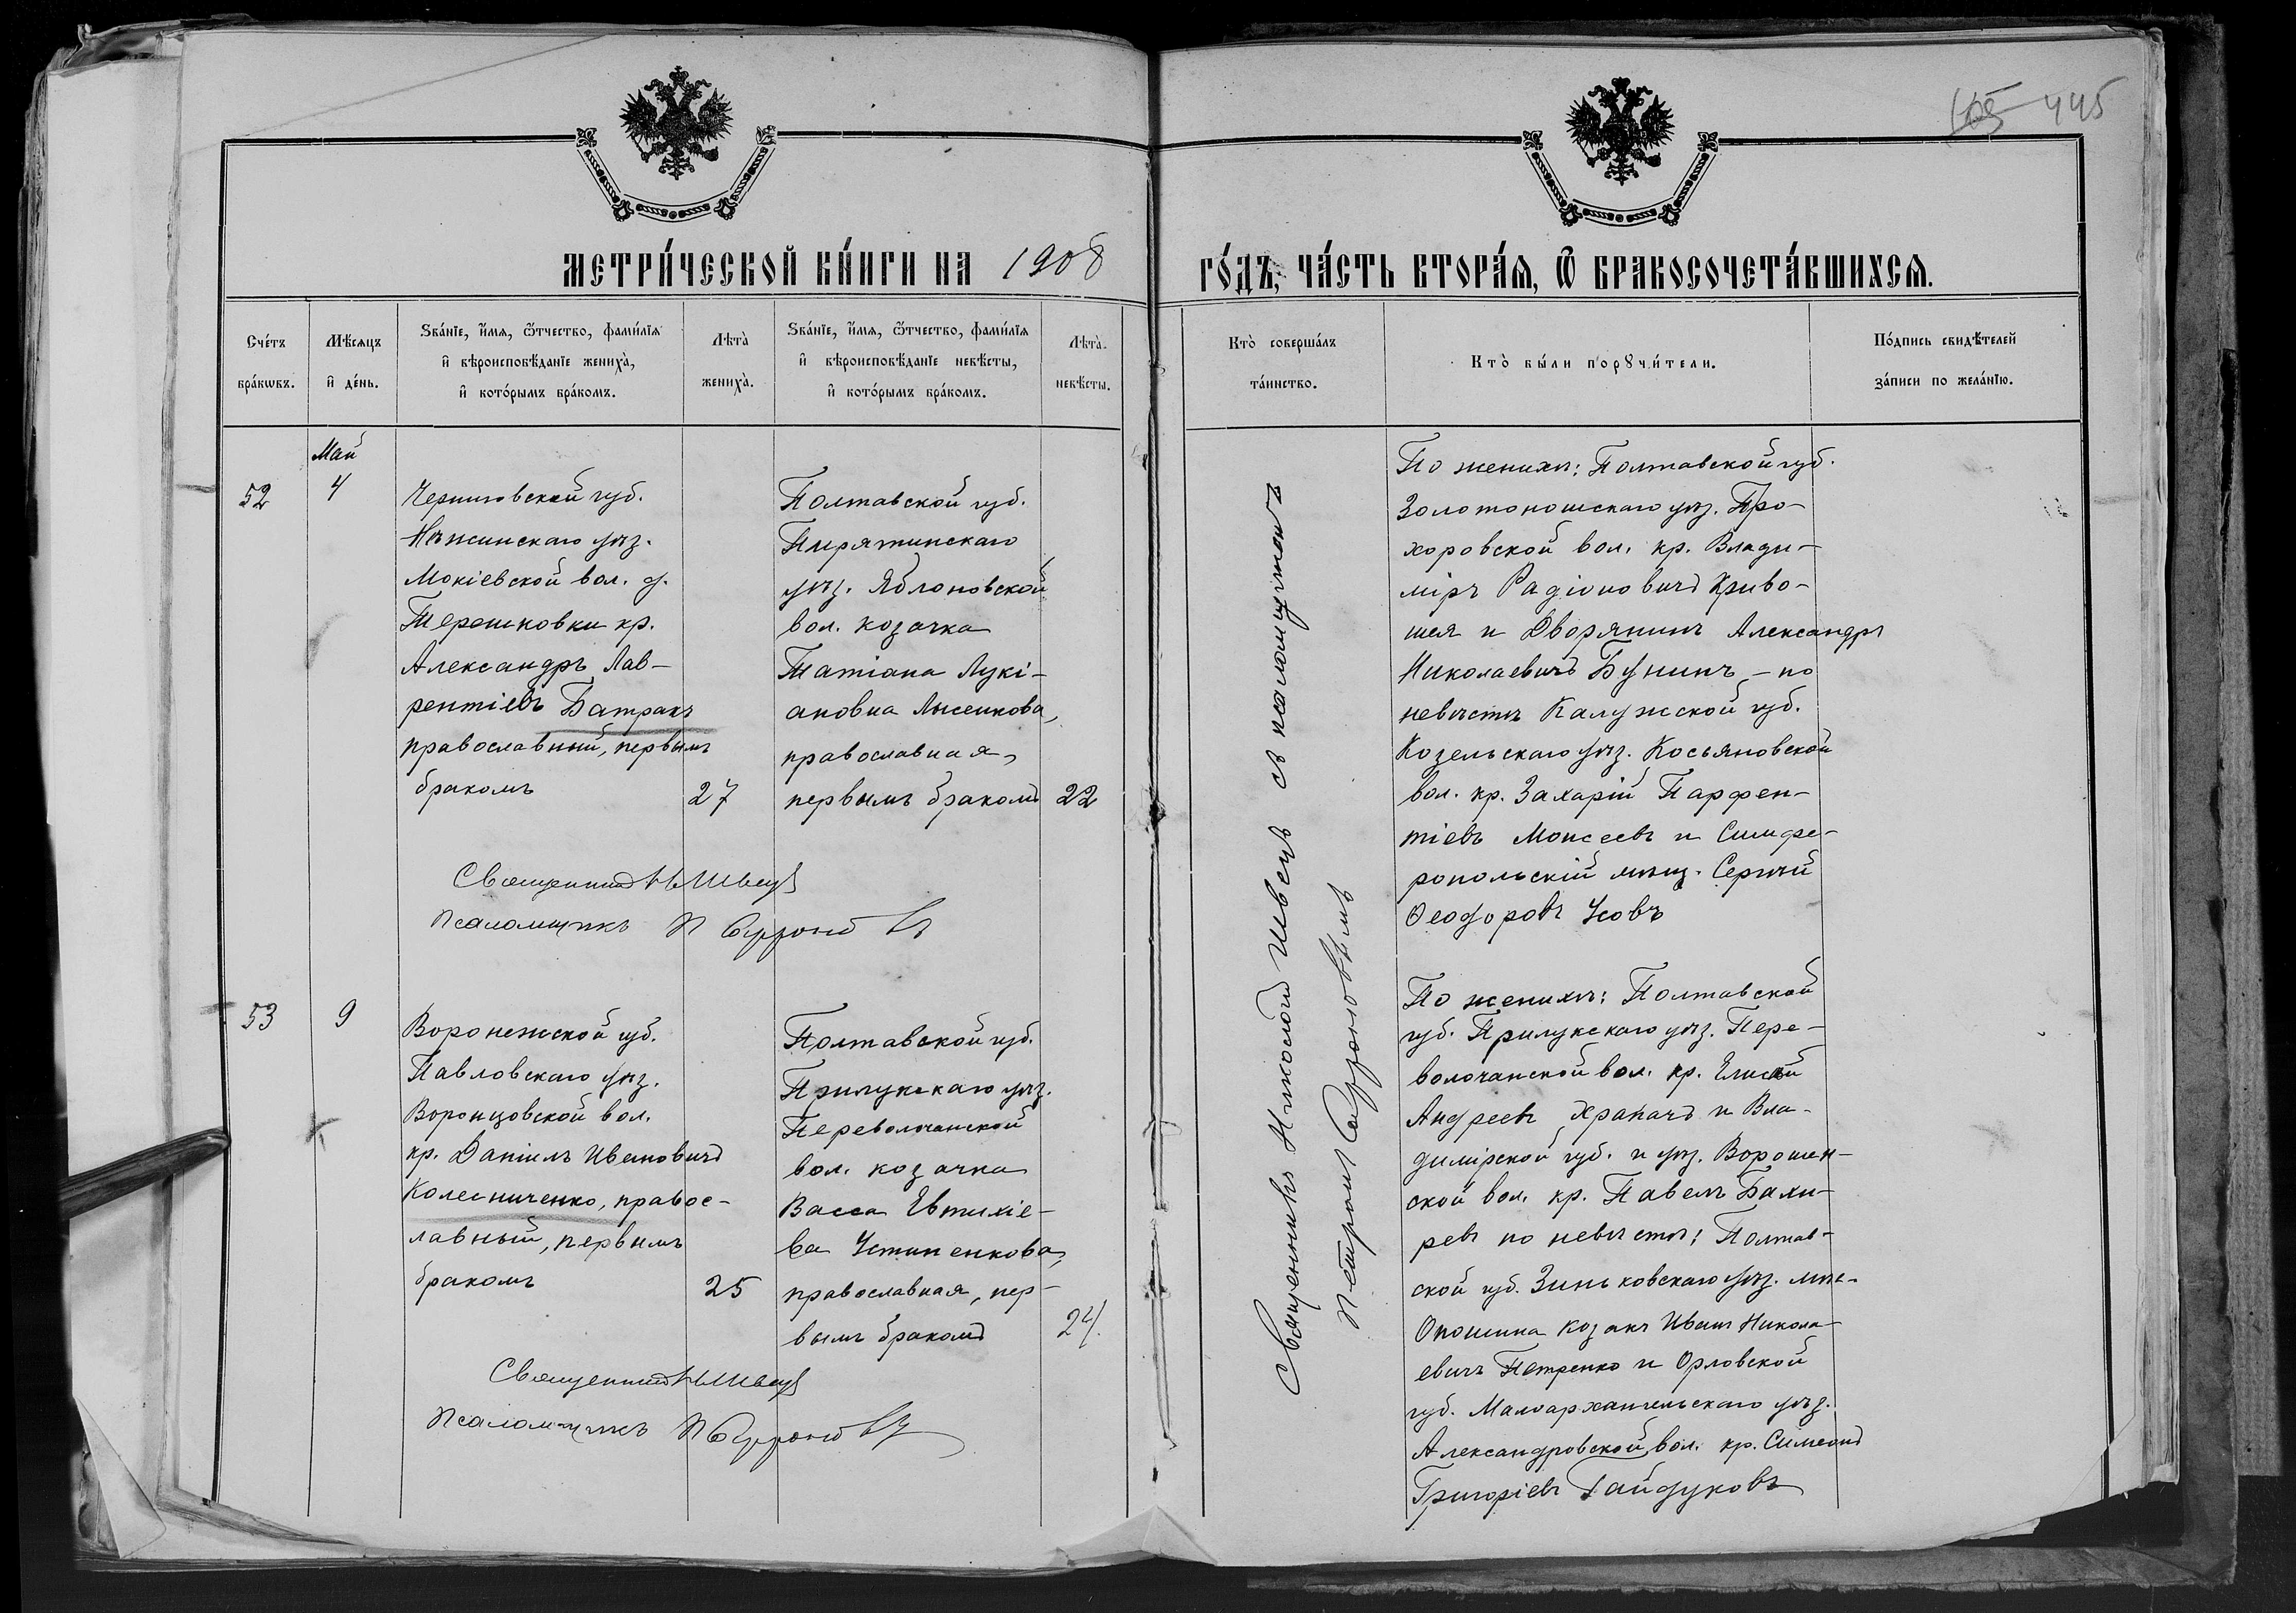 105 445
МЕТРИ́ЧЕСКОЙ КНИ́ГИ НА 1908 ГО́ДЪ, ЧА́СТЬ ВТОРА́Я, Ѿ БРАКОСОЧЕТА́ВШИХСЯ.
Сче́тъ
бра́кѡвъ.
Мѣ́сяцъ
и҆ де́нь.
Ѕва́нїе, и҆́мѧ, ѻ҆́тчество, фами́лїѧ
и҆ вѣроисповѣ́данїе жениха̀,
и҆ кото́рымъ бра́комъ.
Лѣта̀
жениха̀.
Ѕва́нїе, и҆́мѧ, ѻ҆́тчество, фами́лїѧ
и҆ вѣроисповѣ́данїе невѣ́сты,
и҆ кото́рымъ бра́комъ.
Лѣта̀
невѣ́сты.
Кто̀ соверша́лъ
та́инство.
Кто̀ бы́ли порꙋчи́тели.
По́дпись свидѣ́телей
за́писи по жела́нїю.
52
Май
4
Черниговской губ.
Нѣжинскаго уѣз.
Мокіевской вол. д.
Терешковки кр.
Александръ Лав-
рентіевъ Батракъ
православный, первымъ
бракомъ
27
Полтавской губ.
Пирятинскаго
уѣз. Яблоновской
вол. козачка
Татіана Лукі-
ановна Лысенкова,
православная,
первымъ бракомъ
22
Священникъ Н Швецъ
Псаломщикъ П
Священникъ Николай Швецъ съ псаломщикомъ
Петромъ
По женихѣ: Полтавской губ.
Золотоношскаго уѣз. Про-
хоровской вол. кр. Влади-
міръ Радіоновичъ Криво-
шея и Дворянинъ Александръ
Николаевичъ Бунинъ, - по
невѣстѣ Калужской губ.
Козельскаго уѣз. Косьяновской
вол. кр. Захарій Парфен-
тіевъ Моисеевъ и Симфе-
ропольскій мѣщ. Сергѣй
Ѳеодоровъ Усовъ
53
9
Воронежской губ.
Павловскаго уѣз.
Воронцовской вол.
кр. Даніилъ Ивановичъ
Колесниченко, правос-
лавный, первымъ
бракомъ
25
Полтавской губ.
Прилукскаго уѣз.
Переволочанской
вол. козачка
Васса Евтихіе-
ва Устименкова,
православная, пер-
вымъ бракомъ
24.
Священникъ Н Швецъ
Псаломщикъ П
По женихѣ: Полтавской
губ. Прилукскаго уѣз. Пере-
волочанской вол. кр. Елисей
Андреевъ Храпачъ и Вла-
димірской губ. и уѣз. Ворошен-
ской вол. кр. Павелъ Бахи-
ревъ по невѣстѣ: Полтав-
ской губ. Зиньковскаго уѣз. мѣс.
Опошина козакъ Иванъ Никола-
евичъ Петренко и Орловской
губ. Малоархангельскаго уѣз.
Александровской вол. кр. Симеонъ
Григоріевъ Гайдуковъ